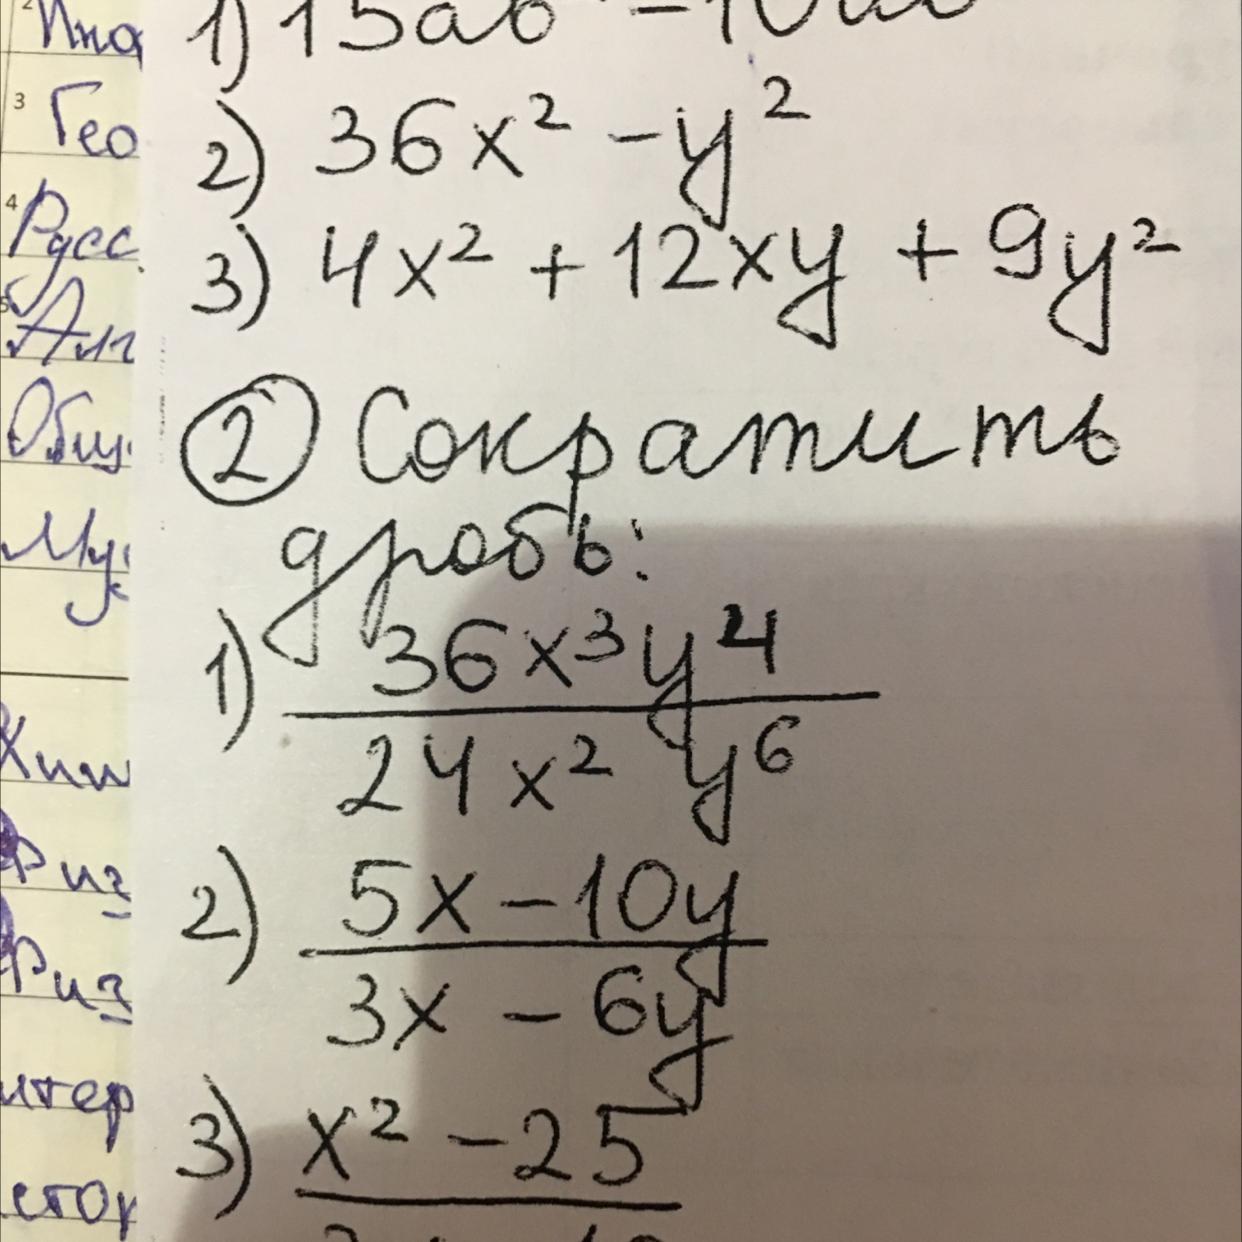 2
3 Гео
4 Русс
Алг
Общ
Хим
Физ
Физ
1) 15ab
2) 36x² - y²
3) 4x² + 12xy + 9y²
② Сократить
дробь:
1) 36x³y⁴
24x² y⁶
2) 5x - 10y
3x - 6y
3) x² - 25